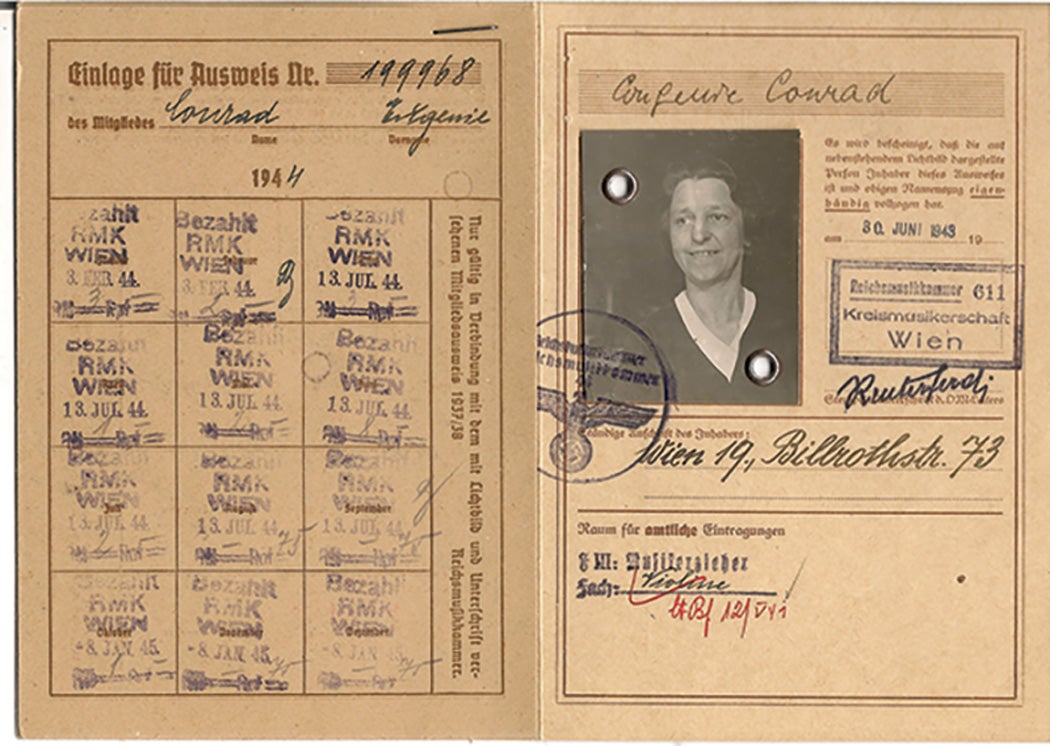 Einlage für Ausweis Nr. 199968
des Mitgliedes Conrad Eugenie
Name Vorname
1944
Bezahlt
RMK
WIEN
3. FEB 44.
Bezahlt
RMK
WIEN
3. FEB 44.
Bezahlt
RMK
WIEN
13. JUL 44.
Bezahlt
RMK
WIEN
13. JUL 44.
Bezahlt
RMK
WIEN
13. JUL 44.
Bezahlt
RMK
WIEN
13. JUL 44.
Bezahlt
RMK
WIEN
Juli
13. JUL 44.
Bezahlt
RMK
WIEN
August
13. JUL 44.
Bezahlt
RMK
WIEN
September
13. JUL 44.
Bezahlt
RMK
WIEN
Oktober
-8. JAN. 45.
Bezahlt
RMK
WIEN
-8. JAN. 45.
Bezahlt
RMK
WIEN
Dezember
-8. JAN. 45.
Nur gültig in Verbindung mit dem mit Lichtbild und Unterschrift ver-
sehenen Mitgliedsausweis 1937/38 Reichsmusikkammer.
Eugenie Conrad
Es wird bescheinigt, daß die auf
nebenstehendem Lichtbild dargestellte
Person Inhaber dieses Ausweises
ist und obigen Namenszug eigen-
händig vollzogen hat.
am 30. JUNI 1943 19
Reichsmusikkammer 611
Kreismusikerschaft
Wien
Ständige Anschrift des Inhabers:
Wien 19., Billrothstr. 73
Raum für amtliche Eintragungen
Musikerzieher
Fach: Violine